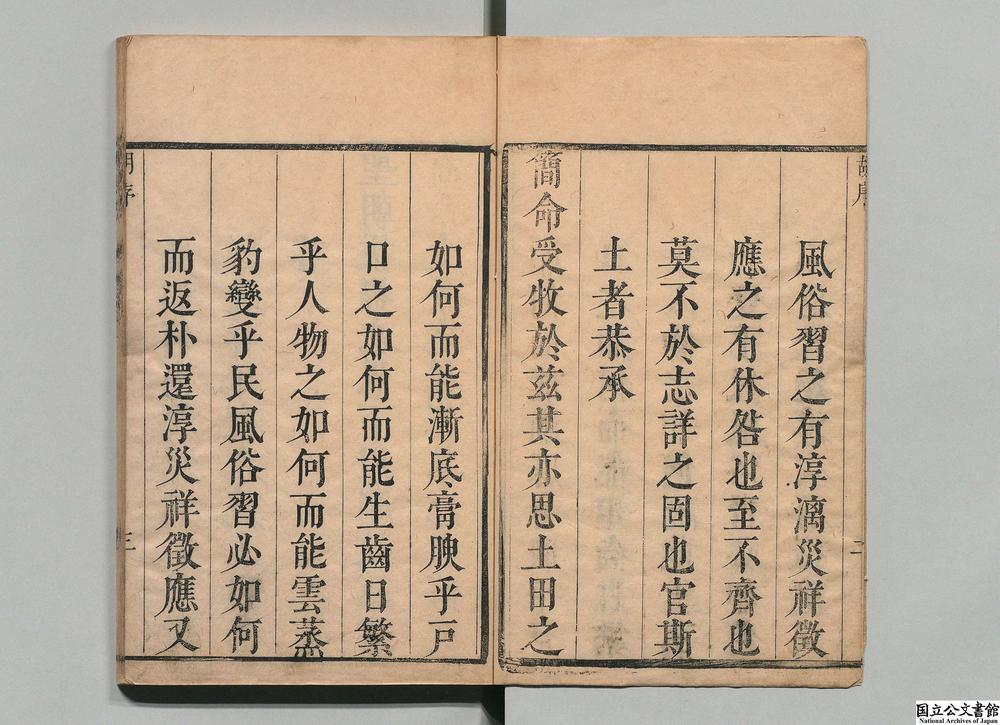 風俗習之有淳漓災祥徵
應之有休咎也至不齊也
莫不於志詳之固也官斯
土者恭承
簡命受牧於茲其亦思土田之
如何而能漸底膏腴乎戸
口之如何而能生齒日繁
乎人物之如何而能雲蒸
豹變乎民風俗習必如何
而返朴還淳災祥徵應又
三
国立公文書館
National Archives of Japan